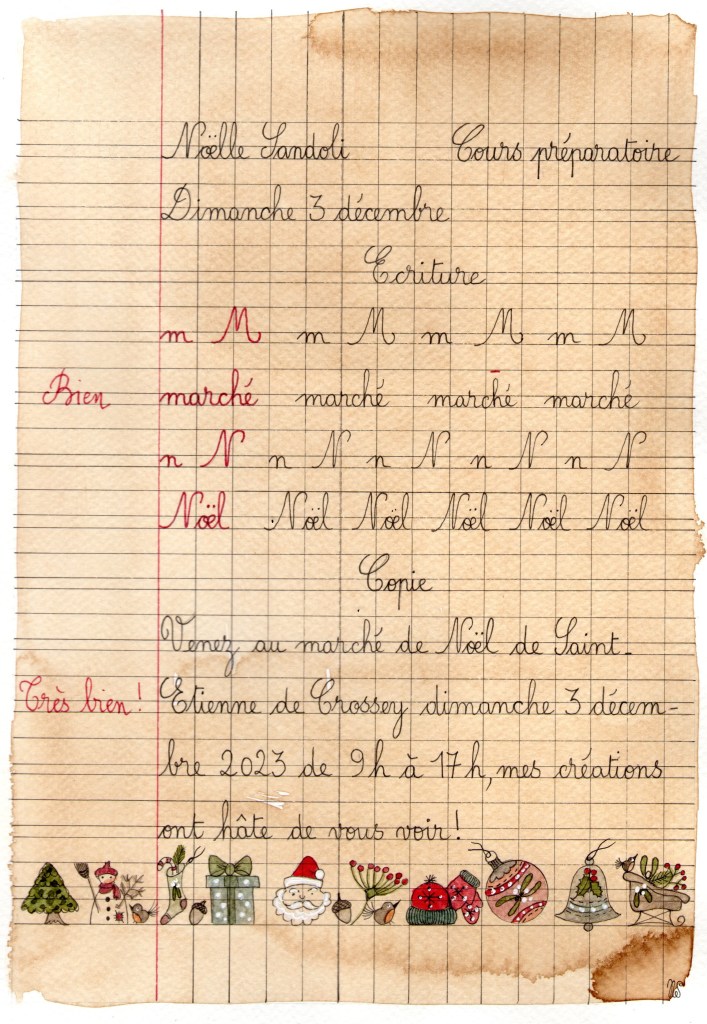 Noëlle Sandoli Cours préparatoire
Dimanche 3 décembre
Ecriture
m M m M m M m M
Bien marché marché marché marché
n N n N n N n N n N
Noël Noël Noël Noël Noël Noël
Copie
Venez au marché de Noël de Saint-
Très bien ! Etienne de Crossey dimanche 3 décem-
bre 2023 de 9h à 17h, mes créations
ont hâte de vous voir !
NS